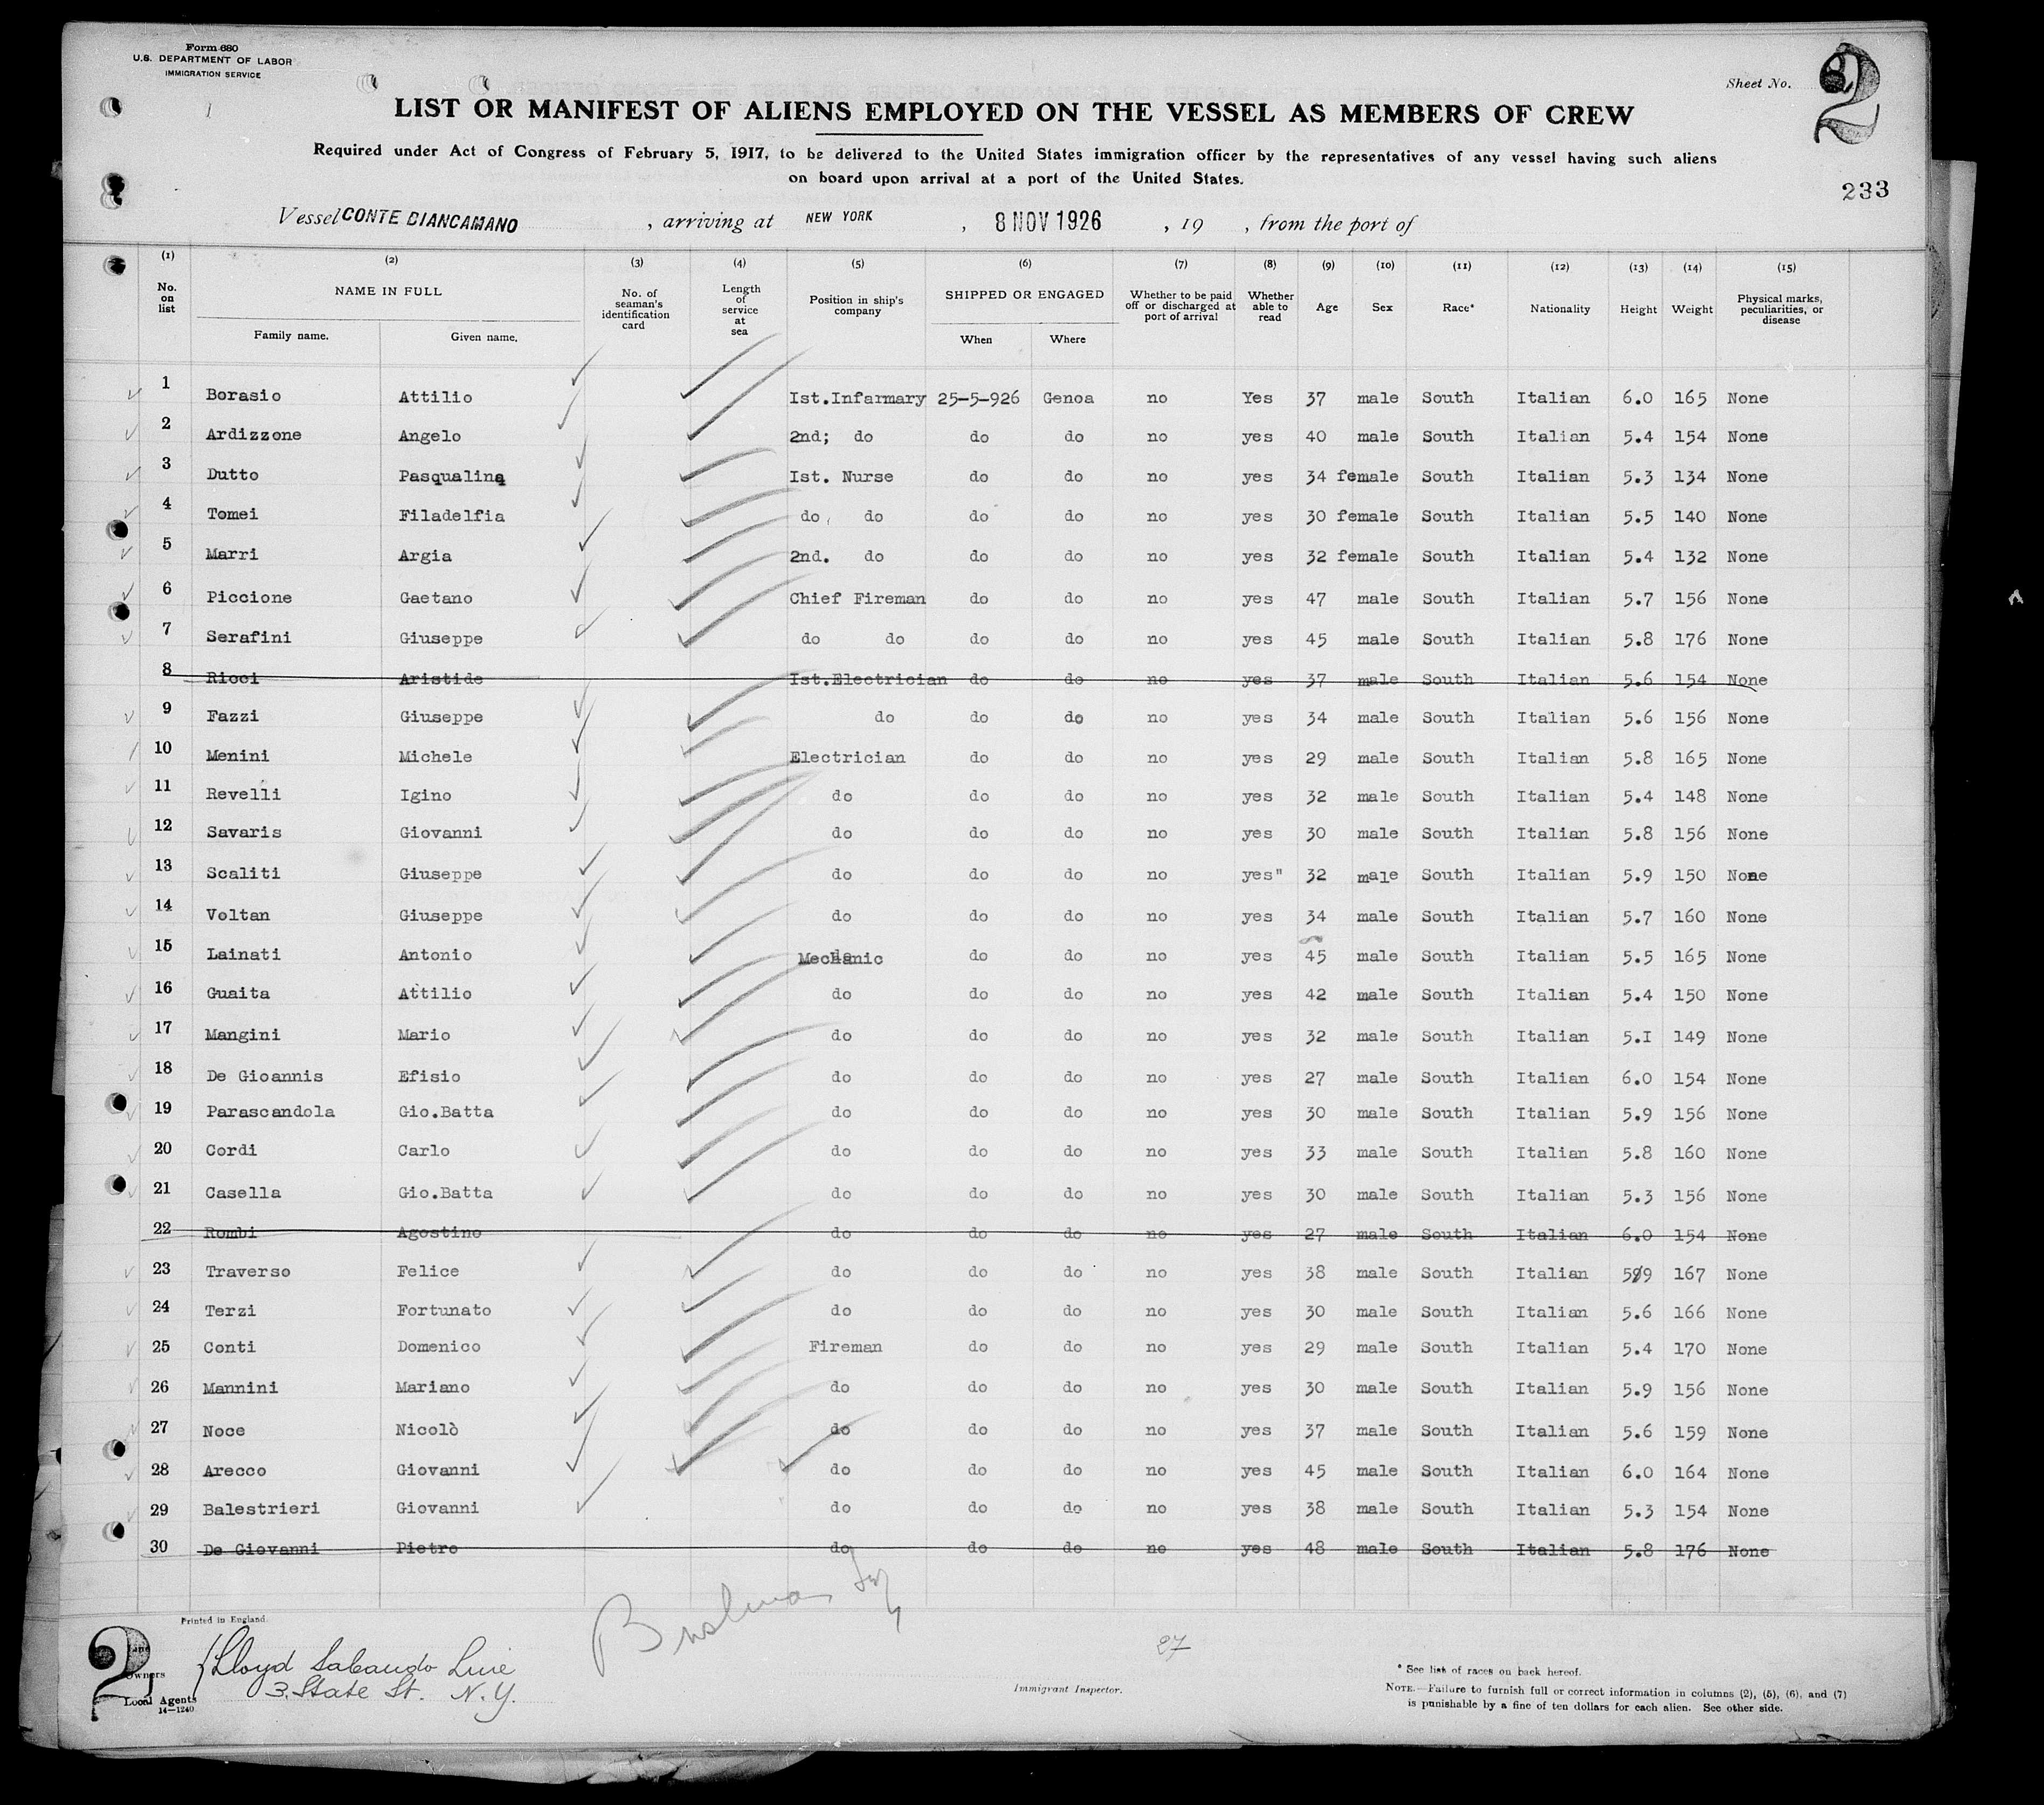 Form 680
U.S. DEPARTMENT OF LABOR
IMMIGRATION SERVICE
Sheet No. 2
LIST OR MANIFEST OF ALIENS EMPLOYED ON THE VESSEL AS MEMBERS OF CREW
Required under Act of Congress of February 5, 1917, to be delivered to the United States immigration officer by the representatives of any vessel having such aliens
on board upon arrival at a port of the United States.
233
Vessel CONTE BIANCAMANO, arriving at NEW YORK, 8 NOV 1926, 19 , from the port of
(1) (2) (3) (4) (5) (6) (7) (8) (9) (10) (11) (12) (13) (14) (15)
No. on list NAME IN FULL Family name. Given name. No. of seaman's identification card Length of service at sea Position in ship's company SHIPPED OR ENGAGED When Where Whether to be paid off or discharged at port of arrival Whether able to read Age Sex Race* Nationality Height Weight Physical marks, peculiarities, or disease
1 Borasio Attilio Ist.Infarmary 25-5-926 Genoa no Yes 37 male South Italian 6.0 165 None
2 Ardizzone Angelo 2nd; do do do no yes 40 male South Italian 5.4 154 None
3 Dutto Pasqualina Ist. Nurse do do no yes 34 female South Italian 5.3 134 None
4 Tomei Filadelfia do, do do do no yes 30 female South Italian 5.5 140 None
5 Marri Argia 2nd. do do do no yes 32 female South Italian 5.4 132 None
6 Piccione Gaetano Chief Fireman do do no yes 47 male South Italian 5.7 156 None
7 Serafini Giuseppe do do do do no yes 45 male South Italian 5.8 176 None
8 Ricci Aristide Ist.Electrician do do no yes 37 male South Italian 5.6 154 None
9 Fazzi Giuseppe do do do no yes 34 male South Italian 5.6 156 None
10 Menini Michele Electrician do do no yes 29 male South Italian 5.8 165 None
11 Revelli Igino do do do no yes 32 male South Italian 5.4 148 None
12 Savaris Giovanni do do do no yes 30 male South Italian 5.8 156 None
13 Scaliti Giuseppe do do do no yes" 32 male South Italian 5.9 150 None
14 Voltan Giuseppe do do do no yes 34 male South Italian 5.7 160 None
15 Lainati Antonio Mechanic do do no yes 45 male South Italian 5.5 165 None
16 Guaita Attilio do do do no yes 42 male South Italian 5.4 150 None
17 Mangini Mario do do do no yes 32 male South Italian 5.I 149 None
18 De Gioannis Efisio do do do no yes 27 male South Italian 6.0 154 None
19 Parascandola Gio.Batta do do do no yes 30 male South Italian 5.9 156 None
20 Cordi Carlo do do do no yes 33 male South Italian 5.8 160 None
21 Casella Gio.Batta do do do no yes 30 male South Italian 5.3 156 None
22 Rombi Agostino do do do no yes 27 male South Italian 6.0 154 None
23 Traverso Felice do do do no yes 38 male South Italian 5.9 167 None
24 Terzi Fortunato do do do no yes 30 male South Italian 5.6 166 None
25 Conti Domenico Fireman do do no yes 29 male South Italian 5.4 170 None
26 Mannini Mariano do do do no yes 30 male South Italian 5.9 156 None
27 Noce Nicolò do do do no yes 37 male South Italian 5.6 159 None
28 Arecco Giovanni do do do no yes 45 male South Italian 6.0 164 None
29 Balestrieri Giovanni do do do no yes 38 male South Italian 5.3 154 None
30 De Giovanni Pietro do do do no yes 48 male South Italian 5.8 176 None
Printed in England.
2
Owners
Local Agents
14—1240
Lloyd Sabaudo Line
3. State St. N.Y.
27
Immigrant Inspector.
* See list of races on back hereof.
NOTE.—Failure to furnish full or correct information in columns (2), (5), (6), and (7)
is punishable by a fine of ten dollars for each alien. See other side.